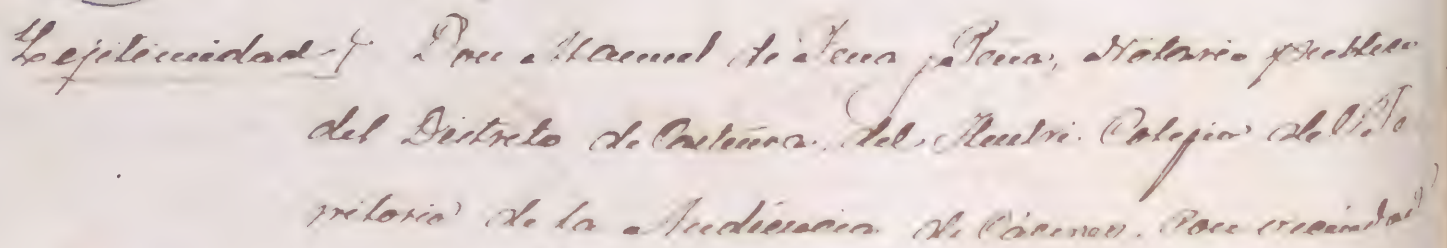 Lejitimidad Don Manuel de Tena y Tena, Notario publico
del Distreto de Castuera, del Ilustre Colegio del Te
rritorio de la Audiencia de Cáceres. Con vecindad